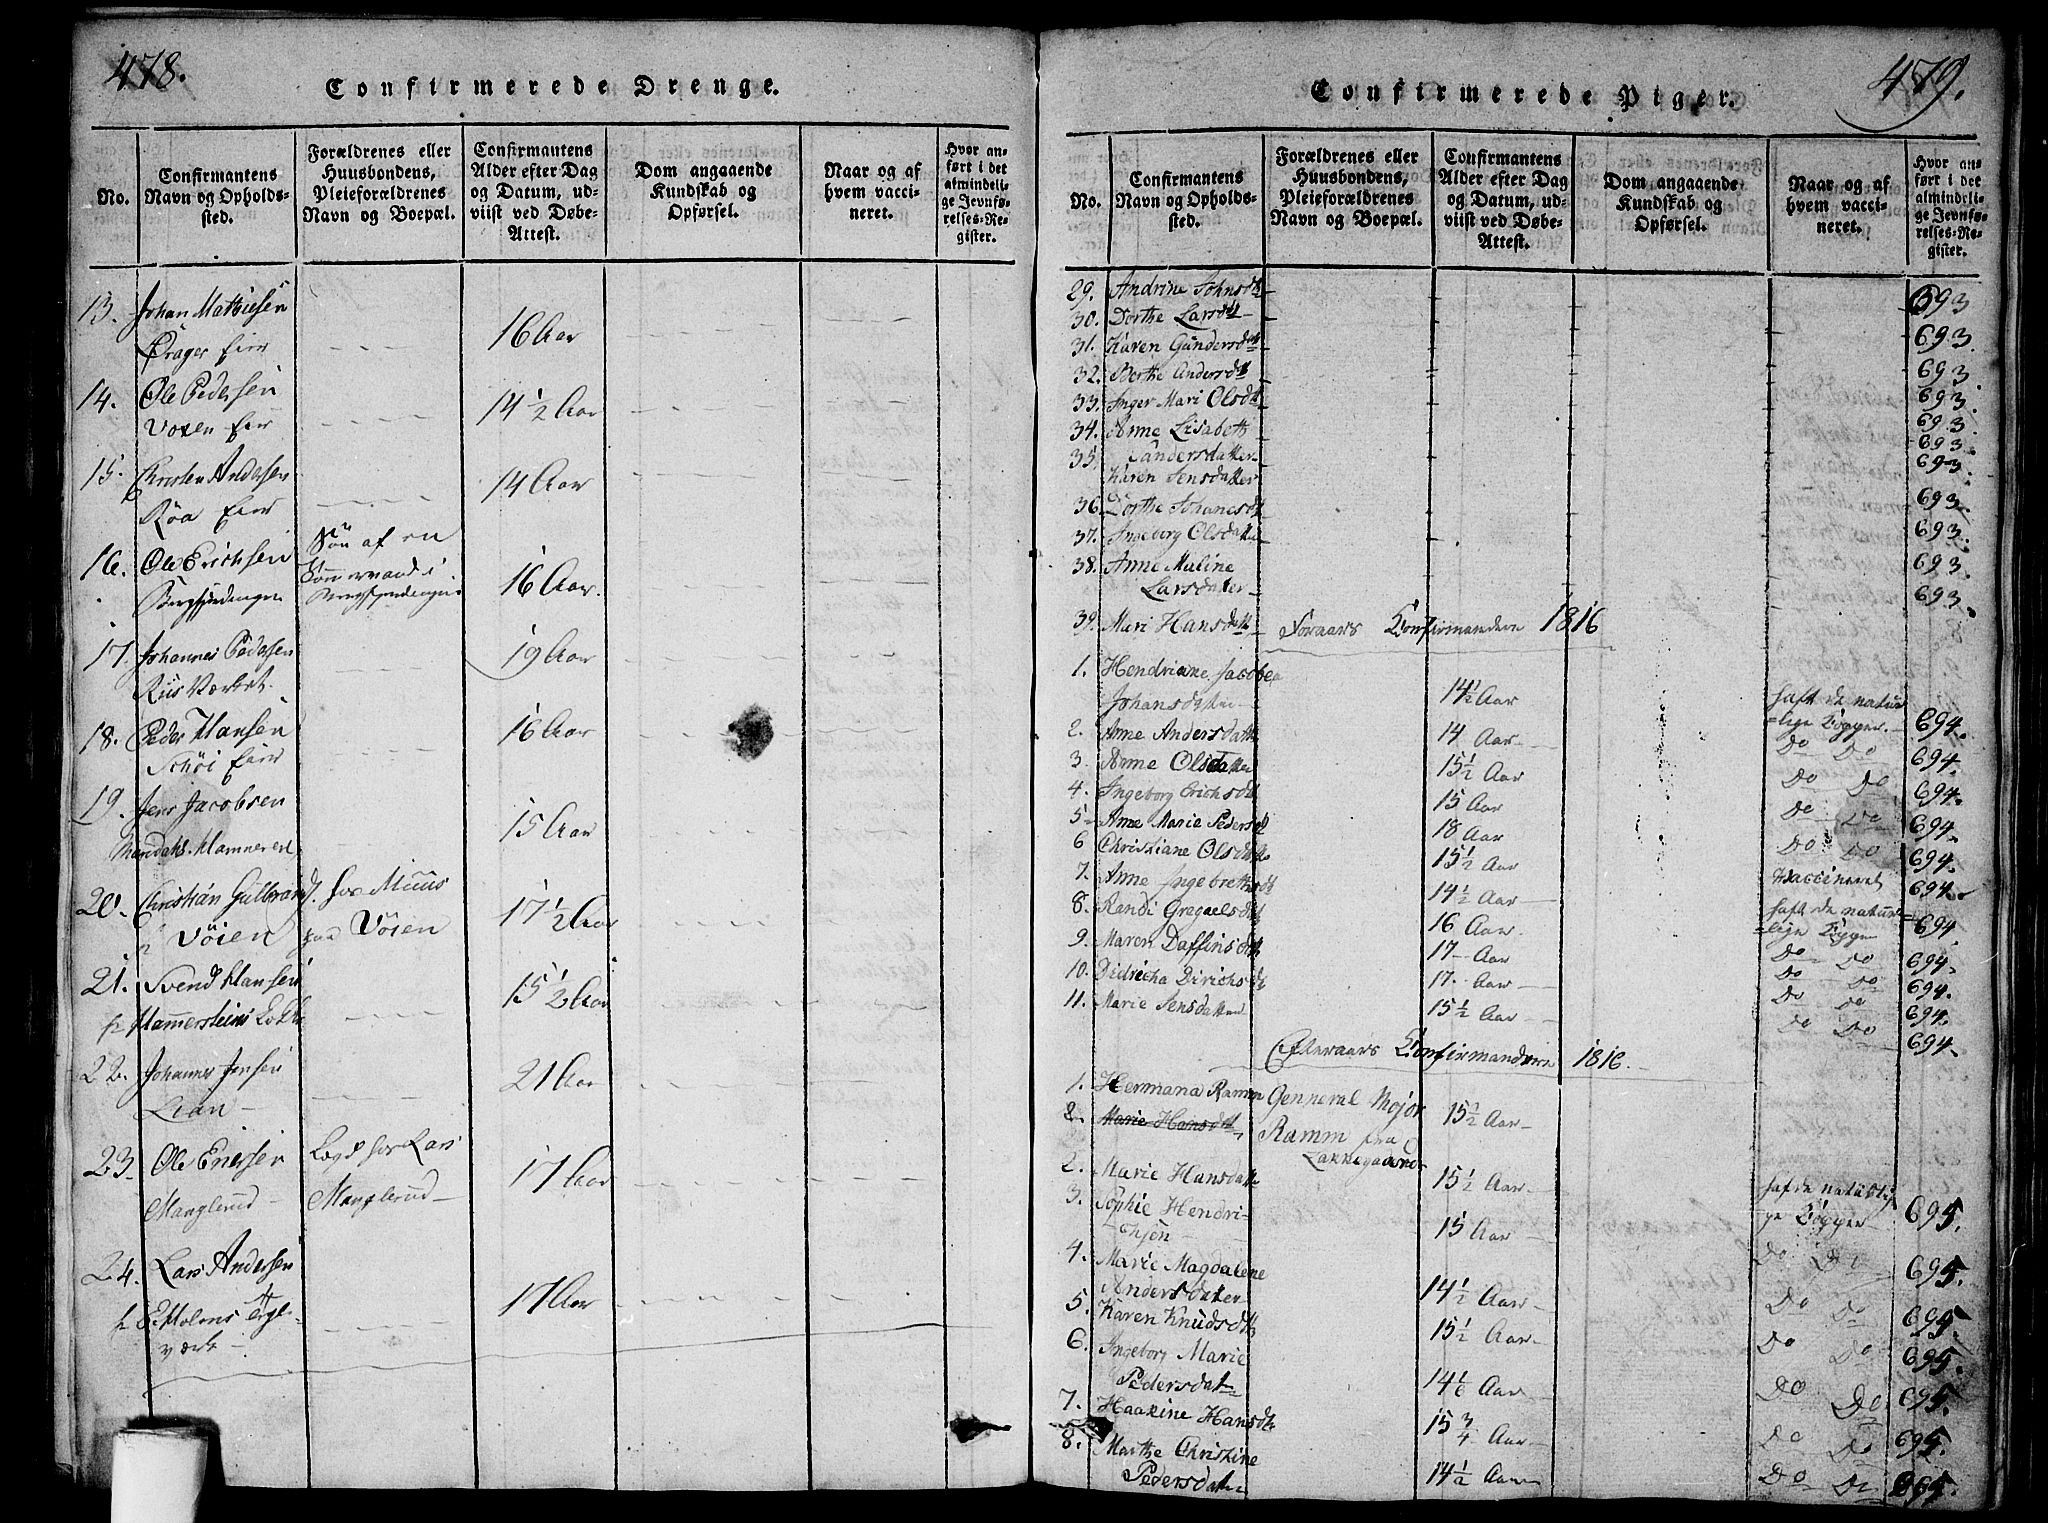 478.
Confirmerede Drenge.
No.
Confirmantens Navn og Opholdssted.
Forældrenes eller Huusbondens, Pleieforældrenes Navn og Boepæl.
Confirmantens Alder efter Dag og Datum, udviist ved Døbe-Attest.
Dom angaaende Kundskab og Opførsel.
Naar og af hvem vaccineret.
Hvor anført i det almindelige Jevnførelses-Register.
13. Johan Mathiesen
16 Aar
14. Ole Pedersen
14 1/2 Aar
15. Christen Andersen
14 Aar
Røa
16. Ole Erichsen
Søn af en
16 Aar.
17. Johannes Pedersen
19 Aar
18. Peder Hansen
16 Aar
19. Jens Jacobsen
15 Aar
20. Christian Gulbrands. hos Muus
i Vøien paa Vøien
17 1/2 Aar
21. Svend Hansen
15 1/2 Aar
22. Johannes Jensen
21 Aar
Lian
23. Ole Ericsen
Logd hos Lars
17 Aar
Manglerud Manglerud
24. Lars Andersen
17 Aar
værk
479.
Confirmerede Piger.
No.
Confirmantens Navn og Opholdssted.
Forældrenes eller Huusbondens, Pleieforældrenes Navn og Boepæl.
Confirmantens Alder efter Dag og Datum, udviist ved Døbe-Attest.
Dom angaaende Kundskab og Opførsel.
Naar og af hvem vaccineret.
Hvor anført i det almindelige Jevnførelses-Register.
29. Andrine Johnsdt 693
30. Dorthe Larsdt 693
31. Karen Gundersdatt 693
32. Berthe Andersdt 693
33. Inger Mari Olsdt 693
34. Anne Lisabeth 693
35. Gundersdatter
Karen Jensdatter 693
36. Dorthe Johanesdt 693
37. Ingeborg Olsdatter 693
38. Anne Maline 693
Larsdatter
39. Mari Hansdatt 693
Foraars Confirmanderne 1816
1. Hendriane Jacobea
Johansdatter 14 1/2 Aar haft de naturlige Kopper. 694.
2. Anne Andersdatter 14 Aar Do Do 694.
3. Anne Olsdatter 15 1/2 Aar Do Do 694.
4. Ingeborg Erichsdt 15 Aar Do Do 694.
5. Anne Marie Pedersdt 18 Aar Do Do 694.
6 Christiane Olsdatter 15 1/2 Aar Vaccineret 694.
7. Anne Ingebrettsdt 14 1/2 Aar haft de naturlige Kopper 694
8. Randi Gregaelsdt 16 Aar. Do Do 694.
9. Maren Daffinsdt 17 Aar Do Do 694.
10. Didricha Dirichsdt 17. Aar Do Do 694.
11. Marie Jensdatter 15 1/2 Aar Do Do 694.
Efteraars Confirmanderne 1816.
1. Hermana Ramm Genneral Major 15 1/2 Aar
2. Marie Hansdatt Ramm paa
Lakkegaarden
2. Marie Hansdatt 15 1/2 Aar haft de naturlige Kopper 695.
3. Sophie Hendri-
15 Aar Do Do 695.
4. Marie Magdalene
Andersdatter 14 1/2 Aar Do Do 695.
5. Karen Knudsdt 15 1/2 Aar Do Do 695.
6. Ingeborg Marie
Pedersdatt 14 Aar Do Do 695.
7. Haakine Hansdt 15 3/4 Aar Do Do 695.
8. Marthe Christine
Pedersdatt 14 1/2 Aar Do Do 695.